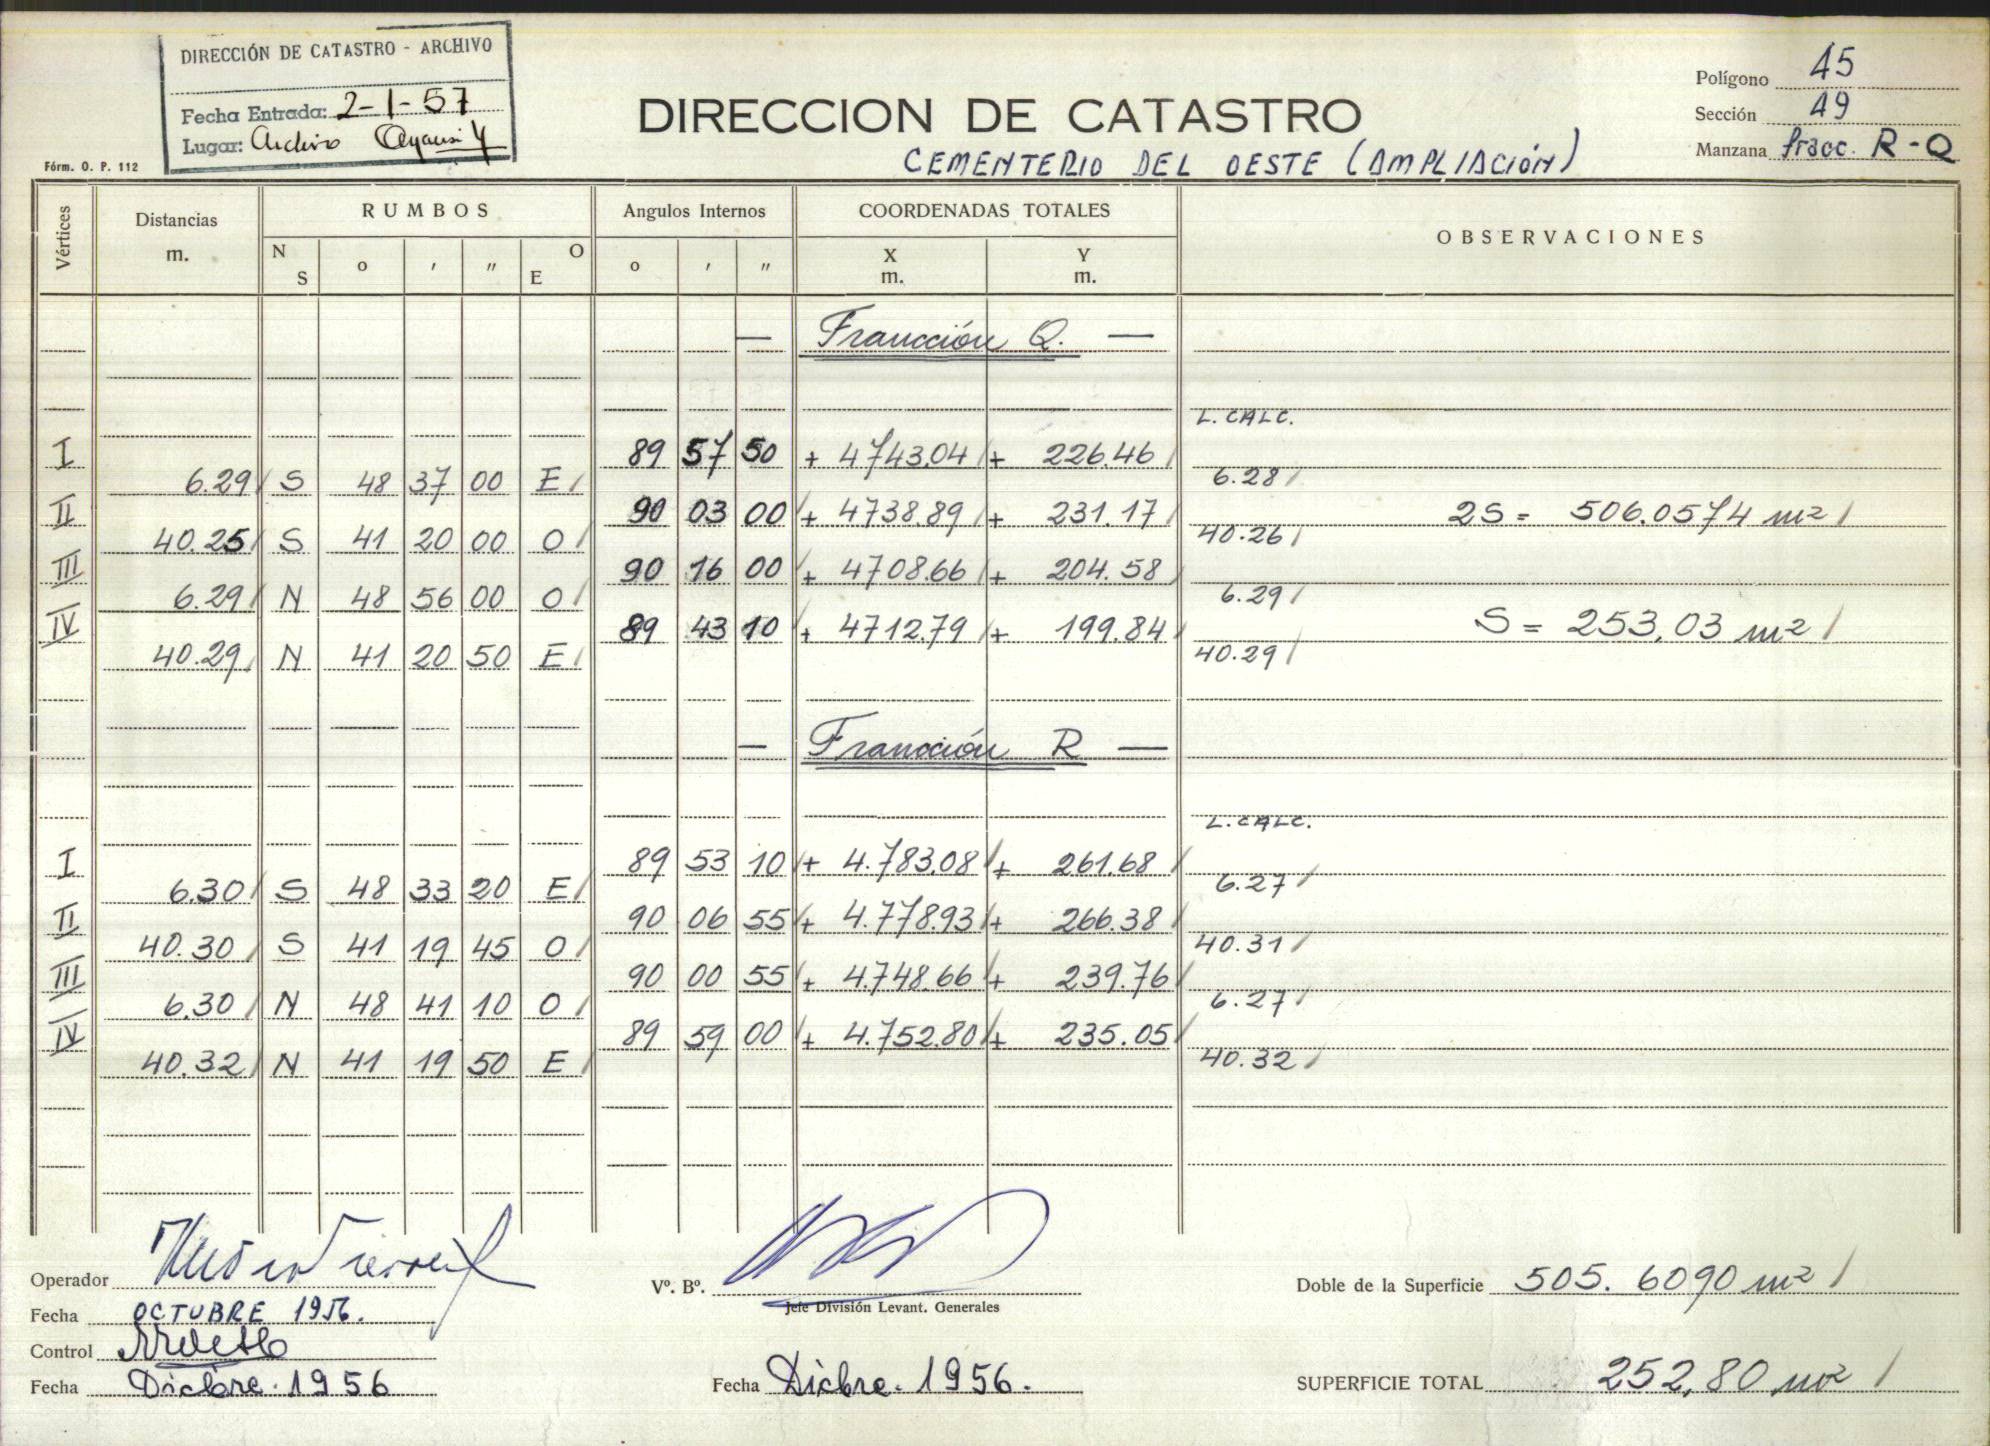 DIRECCIÓN DE CATASTRO - ARCHIVO
Fecha Entrada: 2-1-57
Lugar: Archivo
Fórm. O. P. 112
DIRECCION DE CATASTRO
CEMENTERIO DEL OESTE (AMPLIACIÓN)
Polígono 45
Sección 49
Manzana fracc. R-Q
Vértices Distancias m. RUMBOS N S o ' " O E Angulos Internos o ' " COORDENADAS TOTALES X m. Y m. OBSERVACIONES
— Francción Q. —
L. CALC.
I 89 57 50 + 4743.04 + 226.46
6.29 S 48 37 00 E 6.28
II 90 03 00 + 4738.89 + 231.17 2S = 506.0574 m²
40.25 S 41 20 00 O 40.26
III 90 16 00 + 4708.66 + 204.58
6.29 N 48 56 00 O 6.29
IV 89 43 10 + 4712.79 + 199.84 S = 253,03 m²
40.29 N 41 20 50 E 40.29
— Francción R —
L. CALC.
I 89 53 10 + 4.783.08 + 261.68
6.30 S 48 33 20 E 6.27
II 90 06 55 + 4.778.93 + 266.38
40.30 S 41 19 45 O 40.31
III 90 00 55 + 4.748.66 + 239.76
6.30 N 48 41 10 O 6.27
IV 89 59 00 + 4.752.80 + 235.05
40.32 N 41 19 50 E 40.32
Operador
Fecha OCTUBRE 1956.
Control
Fecha Dicbre. 1956
Vº. Bº.
Jefe División Levant. Generales
Fecha Dicbre. 1956.
Doble de la Superficie 505.6090 m²
SUPERFICIE TOTAL 252,80 m²